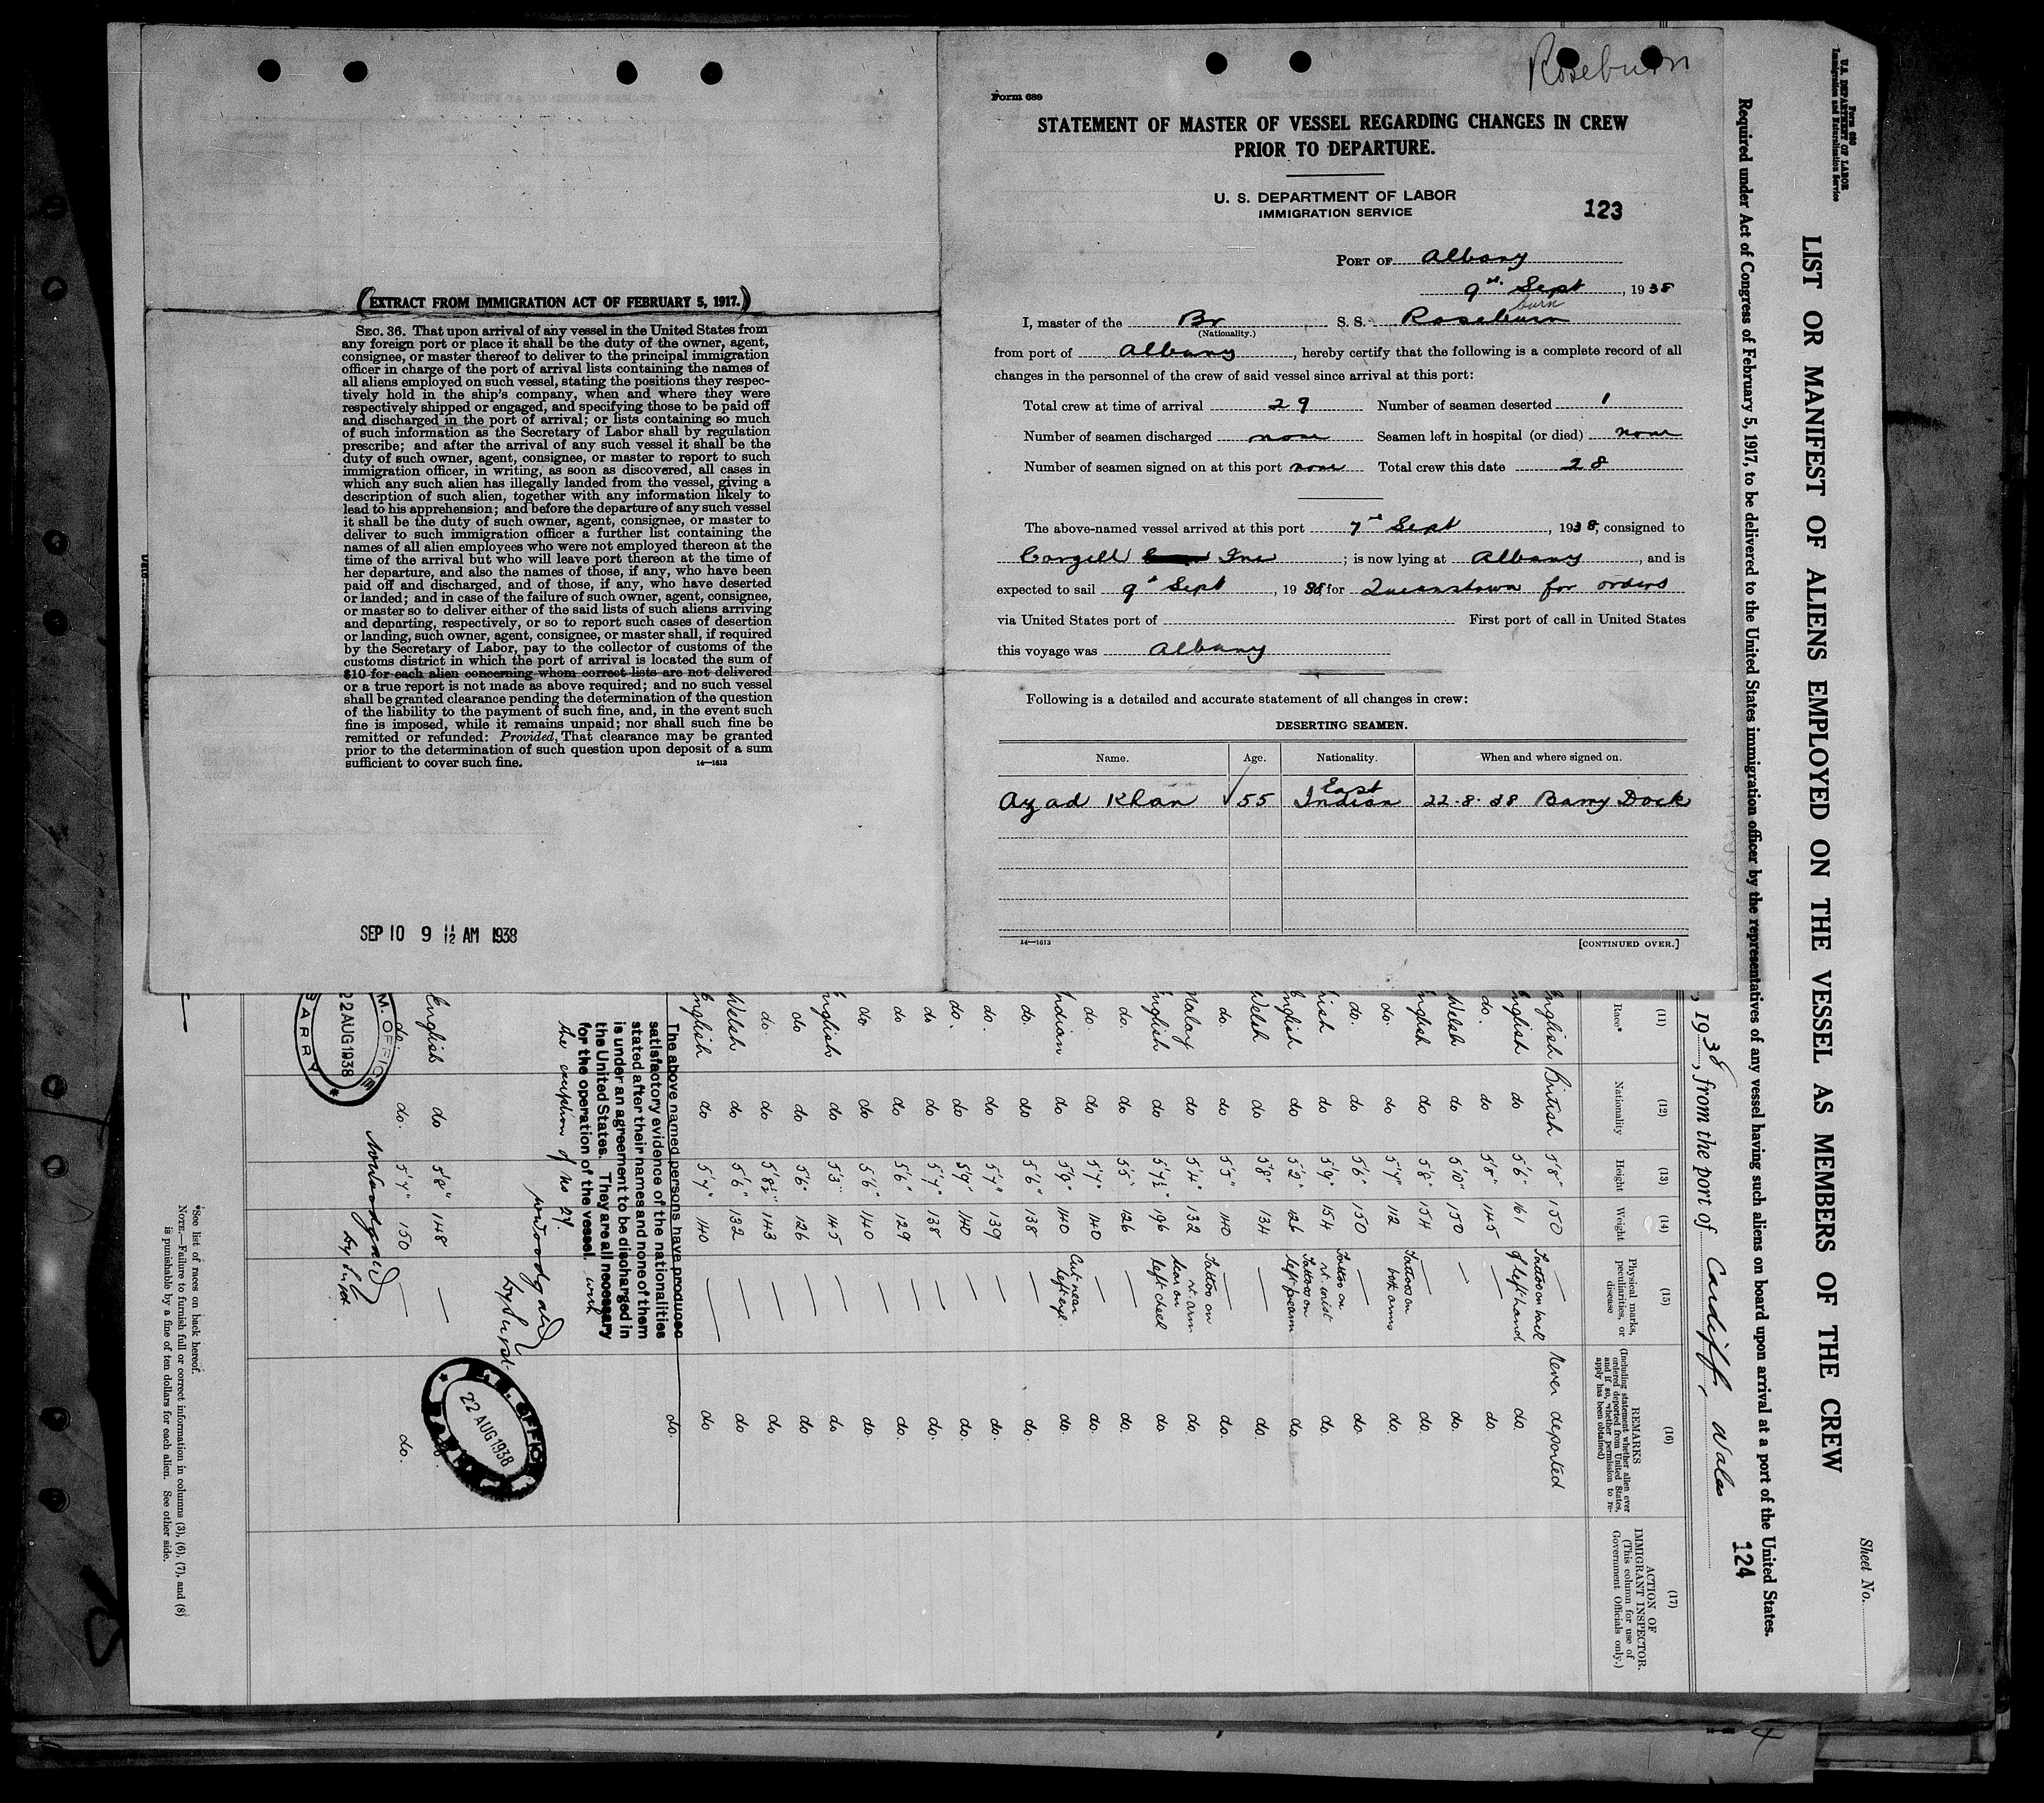 Roseburn
Form 689
STATEMENT OF MASTER OF VESSEL REGARDING CHANGES IN CREW
PRIOR TO DEPARTURE.
U. S. DEPARTMENT OF LABOR
IMMIGRATION SERVICE
123
PORT OF Albany
9th Sept, 1938
burn
I, master of the Br S. S. Roseburn
(Nationality.)
from port of Albany, hereby certify that the following is a complete record of all
changes in the personnel of the crew of said vessel since arrival at this port:
Total crew at time of arrival 29 Number of seamen deserted 1
Number of seamen discharged none Seamen left in hospital (or died) none
Number of seamen signed on at this port none Total crew this date 28
The above-named vessel arrived at this port 7th Sept, 1938, consigned to
Cargill Inc; is now lying at Albany, and is
expected to sail 9th Sept, 1938, for Queenstown for orders
via United States port of First port of call in United States
this voyage was Albany
Following is a detailed and accurate statement of all changes in crew:
DESERTING SEAMEN.
Name. Age. Nationality. When and where signed on.
Ayad Khan √ 55 East Indian 22.8.38 Barry Dock
14—1613
[CONTINUED OVER.]
(EXTRACT FROM IMMIGRATION ACT OF FEBRUARY 5, 1917.)
SEC. 36. That upon arrival of any vessel in the United States from
any foreign port or place it shall be the duty of the owner, agent,
consignee, or master thereof to deliver to the principal immigration
officer in charge of the port of arrival lists containing the names of
all aliens employed on such vessel, stating the positions they respec-
tively hold in the ship's company, when and where they were
respectively shipped or engaged, and specifying those to be paid off
and discharged in the port of arrival; or lists containing so much
of such information as the Secretary of Labor shall by regulation
prescribe; and after the arrival of any such vessel it shall be the
duty of such owner, agent, consignee, or master to report to such
immigration officer, in writing, as soon as discovered, all cases in
which any such alien has illegally landed from the vessel, giving a
description of such alien, together with any information likely to
lead to his apprehension; and before the departure of any such vessel
it shall be the duty of such owner, agent, consignee, or master to
deliver to such immigration officer a further list containing the
names of all alien employees who were not employed thereon at the
time of the arrival but who will leave port thereon at the time of
her departure, and also the names of those, if any, who have been
paid off and discharged, and of those, if any, who have deserted
or landed; and in case of the failure of such owner, agent, consignee,
or master so to deliver either of the said lists of such aliens arriving
and departing, respectively, or so to report such cases of desertion
or landing, such owner, agent, consignee, or master shall, if required
by the Secretary of Labor, pay to the collector of customs of the
customs district in which the port of arrival is located the sum of
$10 for each alien concerning whom correct lists are not delivered
or a true report is not made as above required; and no such vessel
shall be granted clearance pending the determination of the question
of the liability to the payment of such fine, and, in the event such
fine is imposed, while it remains unpaid; nor shall such fine be
remitted or refunded: Provided, That clearance may be granted
prior to the determination of such question upon deposit of a sum
sufficient to cover such fine.
14—1613
SEP 10 9 11/12 AM 1938
Form 689
U.S. DEPARTMENT OF LABOR
Immigration and Naturalization Service
Sheet No.
LIST OR MANIFEST OF ALIENS EMPLOYED ON THE VESSEL AS MEMBERS OF THE CREW
Required under Act of Congress of February 5, 1917, to be delivered to the United States immigration officer by the representatives of any vessel having such aliens on board upon arrival at a port of the United States.
124
, 1938, from the port of Cardiff, Wales
(11) (12) (13) (14) (15) (16) (17)
Race* Nationality Height Weight Physical marks, peculiarities, or disease REMARKS (Including statement whether alien ever ordered deported from United States, and if so, whether permission to re-apply has been obtained) ACTION OF IMMIGRANT INSPECTOR. (This column for use of Government Officials only.)
English British 5'8" 150 — Never deported
English do 5'6" 161 Tattoo on back of left hand do.
do. do 5'8" 145 — do.
Welsh do 5'10" 150 — do.
English do 5'8" 154 — do.
do. do 5'7" 112 Tattoos on both arms do.
do. do 5'6" 150 — do.
Irish do 5'9" 154 Tattoo on rt. wrist do.
English do 5'2" 126 Tattoos on left forearm do.
Welsh do 5'8" 134 — do.
do. do 5'5" 140 — do.
Malay do 5'4" 132 Tattoo on rt. arm do.
English do 5'7½" 196 Scar on left cheek do
do. do 5'5" 126 — do.
do. do 5'7" 140 — do.
Indian do 5'9" 140 Cut near left eye do.
do. do 5'6" 138 — do.
do. do 5'7" 139 — do.
do. do 5'9" 140 — do.
do do 5'7" 138 — do.
do do 5'6" 129 — do.
do do 5'6" 140 — do.
English do 5'3" 145 — do
do do 5'6" 126 — do
do. do 5'8½" 143 — do
Welsh do 5'6" 132 — do
English do 5'7" 140 — do
do.
The above named persons have produced
satisfactory evidence of the nationalities
stated after their names and none of them
is under an agreement to be discharged in
the United States. They are all necessary
for the operation of the vessel, with
the exception of No 29
22 AUG 1938
BARRY
English do 5'8" 148 —
do. do. 5'7" 150 — do.
M.M. OFFICE
22 AUG 1938
BARRY
*See list of races on back hereof.
NOTE.—Failure to furnish full or correct information in columns (3), (6), (7), and (8)
is punishable by a fine of ten dollars for each alien. See other side.